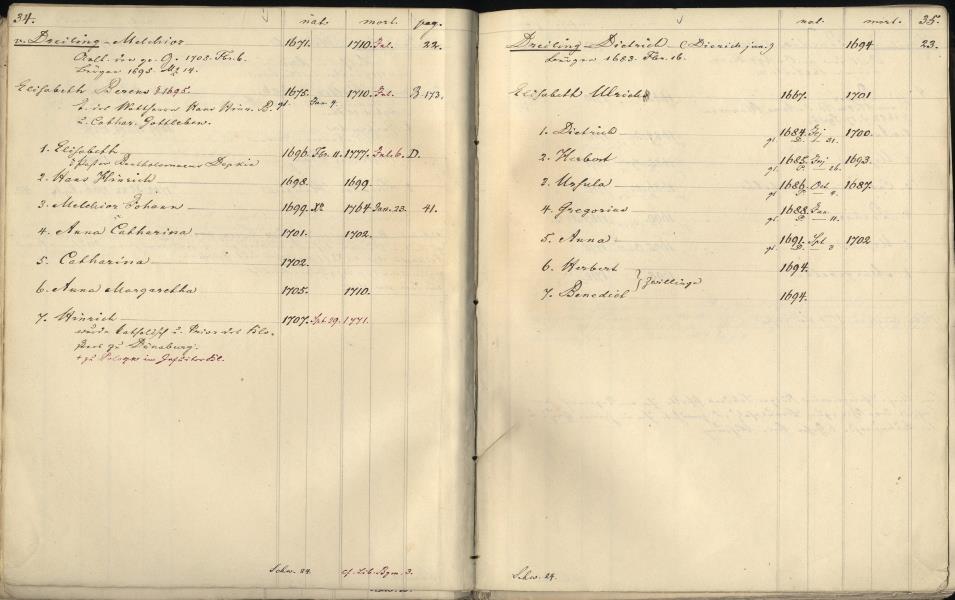 34.
nat. mort. pag.
v. Dreiling – Melchior 1671. 1710. Jul. 22.
Aelt. der gr. G. 1703. Fbr. 6.
Bürger 1695. Mz 14.
Elisabeth Berens 1695. 1675. Jan. 9. 1710. Jul. B. 173.
T. des Hans Hinr. B.
u. Cathar. Gottleben.
1. Elisabeth 1696. Fbr. 11. 1777. Jul. 6. D.
Bartholomaeus Depkin
2. Hans Hinrich 1698. 1699.
3. Melchior Johann 1699. Xb 1764. Jan. 23. 41.
4. Anna Catharina 1701. 1702.
5. Catharina 1702.
6. Anna Margaretha 1705. 1710.
7. Hinrich 1707. Spt 29. 1771.
wurde katholisch u. Prior des Klo-
sters zu Dünaburg.
† zu Polozk im
Schw. 24. cf. Lib. Bgm. 3.
35.
nat. mort.
Dreiling – Dietrich (Dierich jun.) 1694 23.
Bürger 1683. Fbr. 16.
Elisabeth Ulrich 1667. 1701
1. Dietrich 1684. 31. 1700.
2. Herbert 1685. 26. 1693.
3. Ursula 1686. Oct 1687.
4. Gregorius 1688. Jan. 11.
5. Anna 1691. Spt 3 1702
6. Herbert 1694.
} Zwillinge
7. Benedict 1694.
Schw. 24.